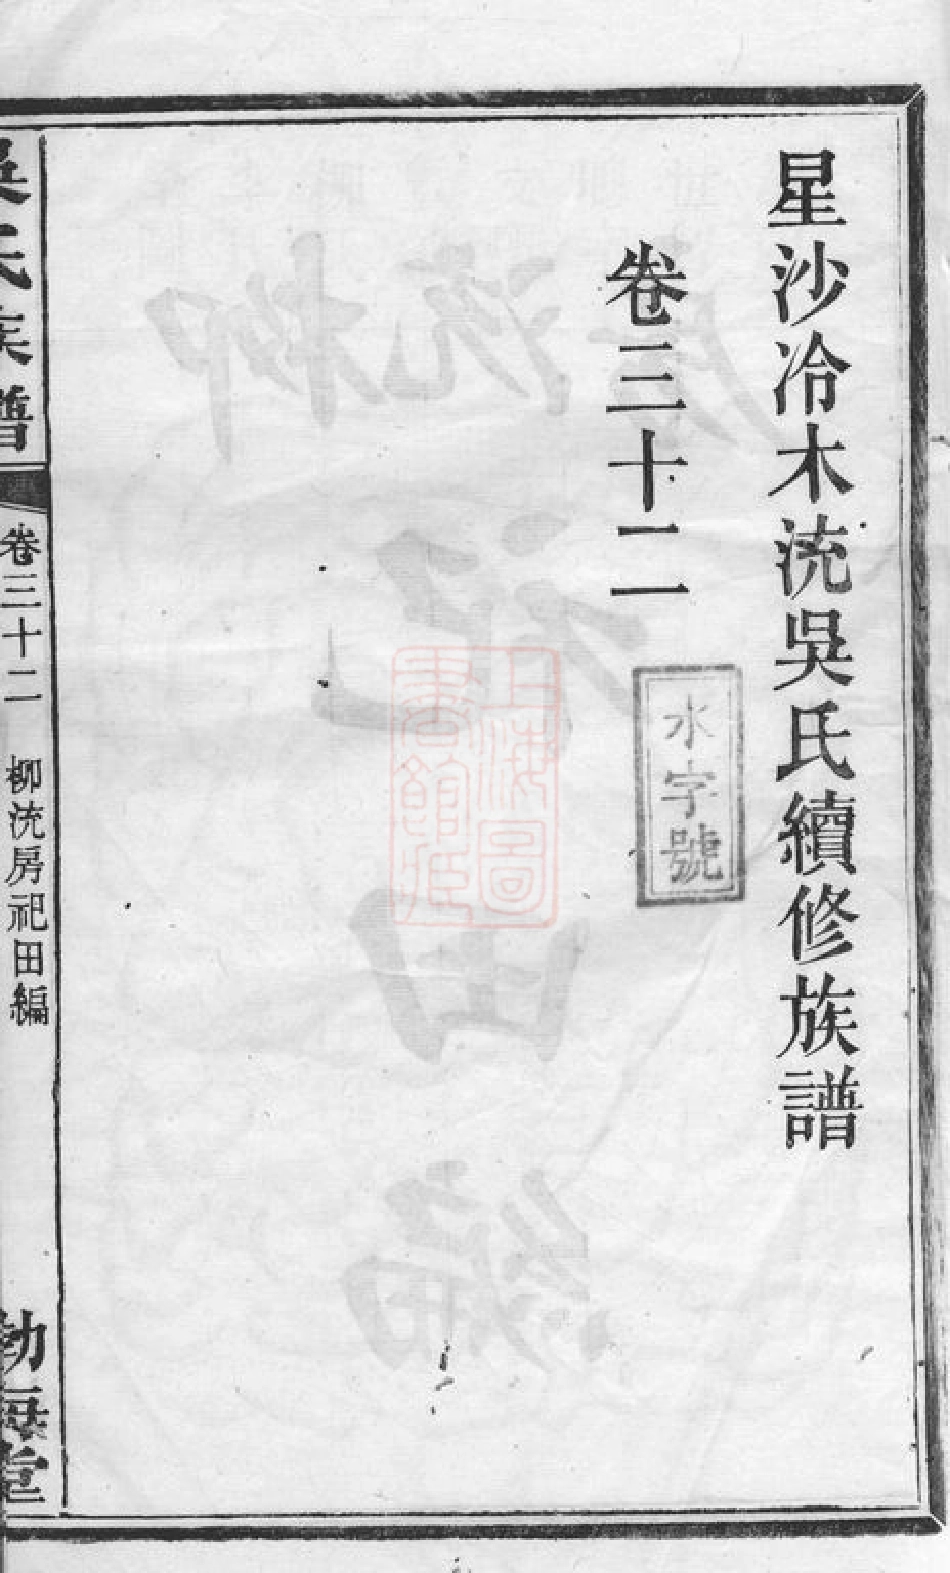 星沙冷木㳘吳氏續修族譜
卷三十二
水字號
上海圖書館藏
吳氏族譜
卷三十二
柳㳘房祀田編